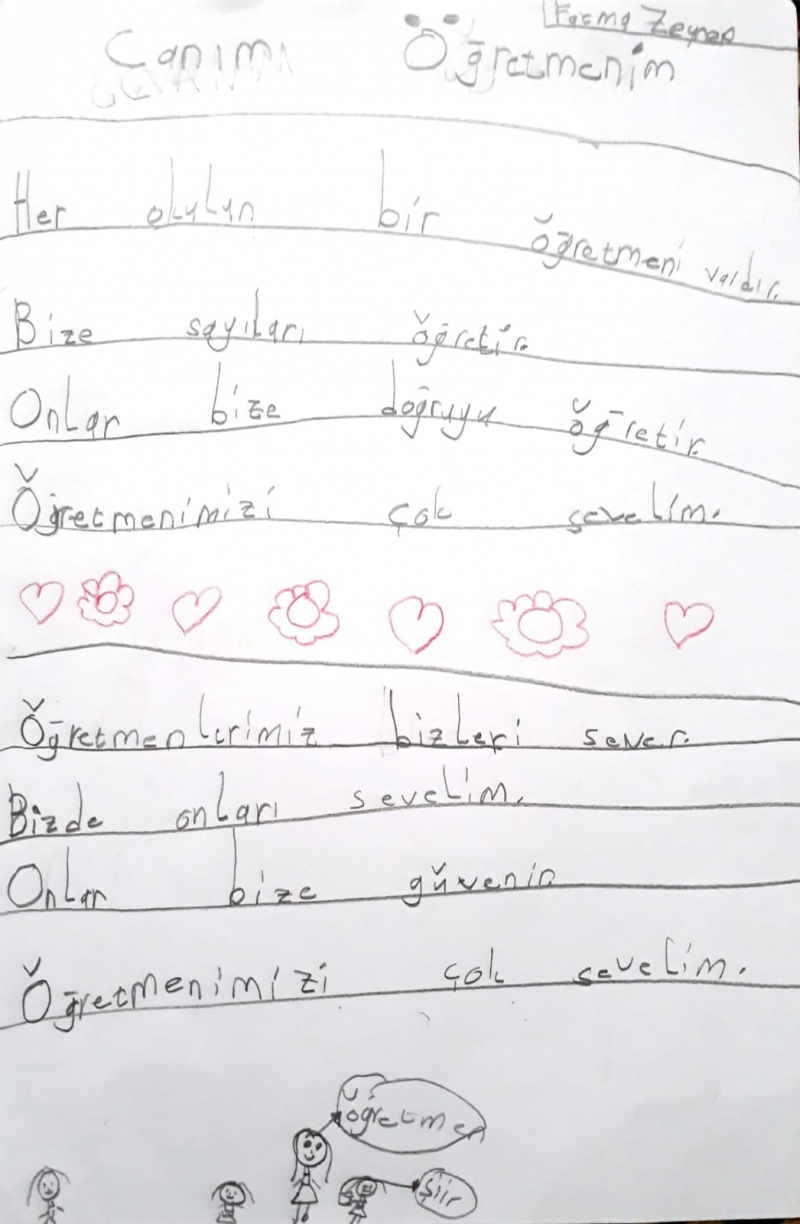 Fatma Zeynep
Canımı Öğretmenim
Her okulun bir öğretmeni valdır.
Bize sayıları öğretir.
Onlar bize doğruyu öğretir.
Öğretmenimizi çok sevelim.
Öğretmenlerimiz bizleri sever.
Bizde onları sevelim.
Onlar bize güvenir.
Öğretmenimizi çok sevelim.
öğretmen
şiir